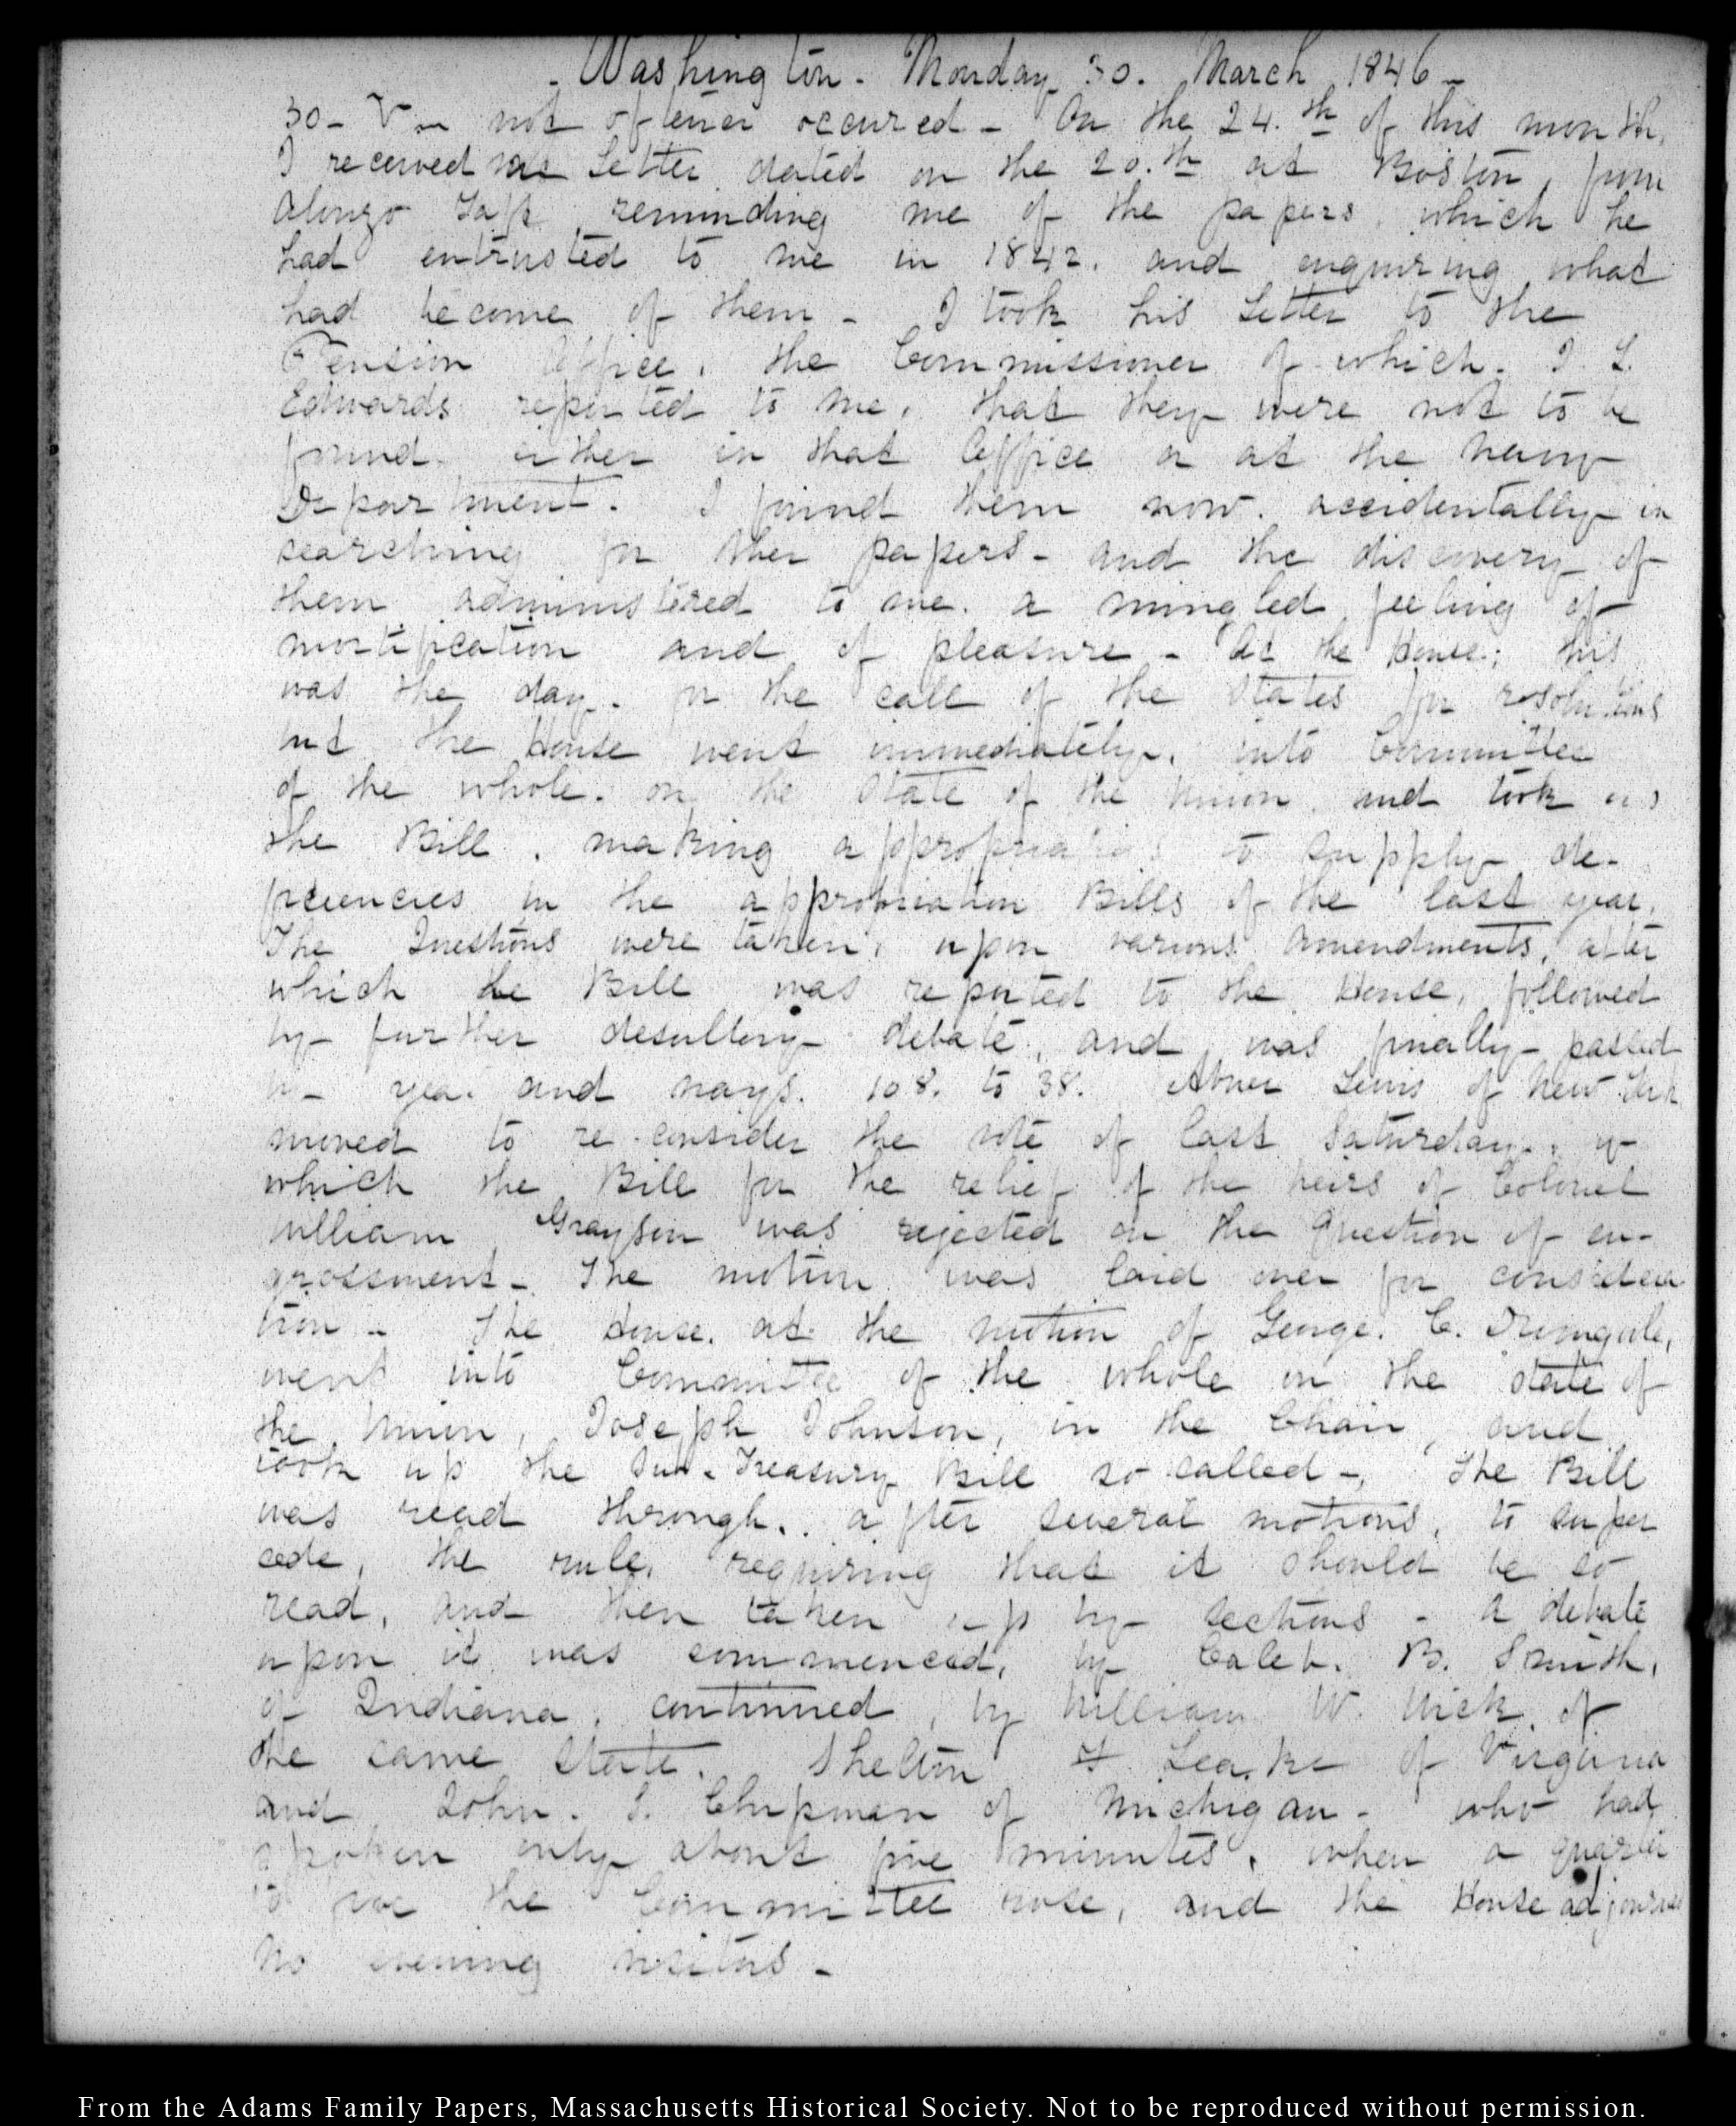 - Washington - Monday 30. March 1846 -
30 - V not oftener occured - On the 24.th of this month,
I received a Letter dated on the 20.th at Boston, from
Alonzo reminding me of the papers which he
had entrusted to me in 1842. and enquiring what
had become of them - I took his Letter to the
Pension Office, the Commissioner of which. J. L.
Edwards reported to me, that they were not to be
found either in that Office or at the Navy
Department. I found them now accidentally in
searching for other papers - and the discovery of
them administered to me a mingled feeling of
mortification and of pleasure - At the House; this
was the day for the call of the States for resolutions
but the House went immediately, into Committee
of the whole on the State of the Union and took up
the Bill, making appropriations to supply de-
ficiencies in the appropriation Bills of the last year.
The Questions were taken, upon various amendments, after
which the Bill was reported to the House, followed
by further desultory debate, and was finally passed
by yea. and nays. 108. to 38. Abner Lewis of New York
moved to re-consider the vote of last Saturday, by
which the Bill for the relief of the heirs of Colonel
William Grayson was rejected on the question of en-
grossment - The motion was laid over for considera
tion - The House, at the motion of George. C. Dromgoole,
went into Committee of the whole on the state of
the Union, Joseph Johnson, in the Chair, and
took up the Sub-Treasury Bill so called -, The Bill
was read through, after several motions, to super
cede, the rule, requiring that it should be so
read, and then taken up by sections - A debate
upon it was commenced, by Caleb. B. Smith,
of Indiana, continued, by William W. Wick of
the same State. Shelton F Leake of Virginia
and John. S. Chipman of Michigan - who had
spoken only about five minutes, when a quarter
the Committee rose, and the House adjourned
No evening visitors -
From the Adams Family Papers, Massachusetts Historical Society. Not to be reproduced without permission.